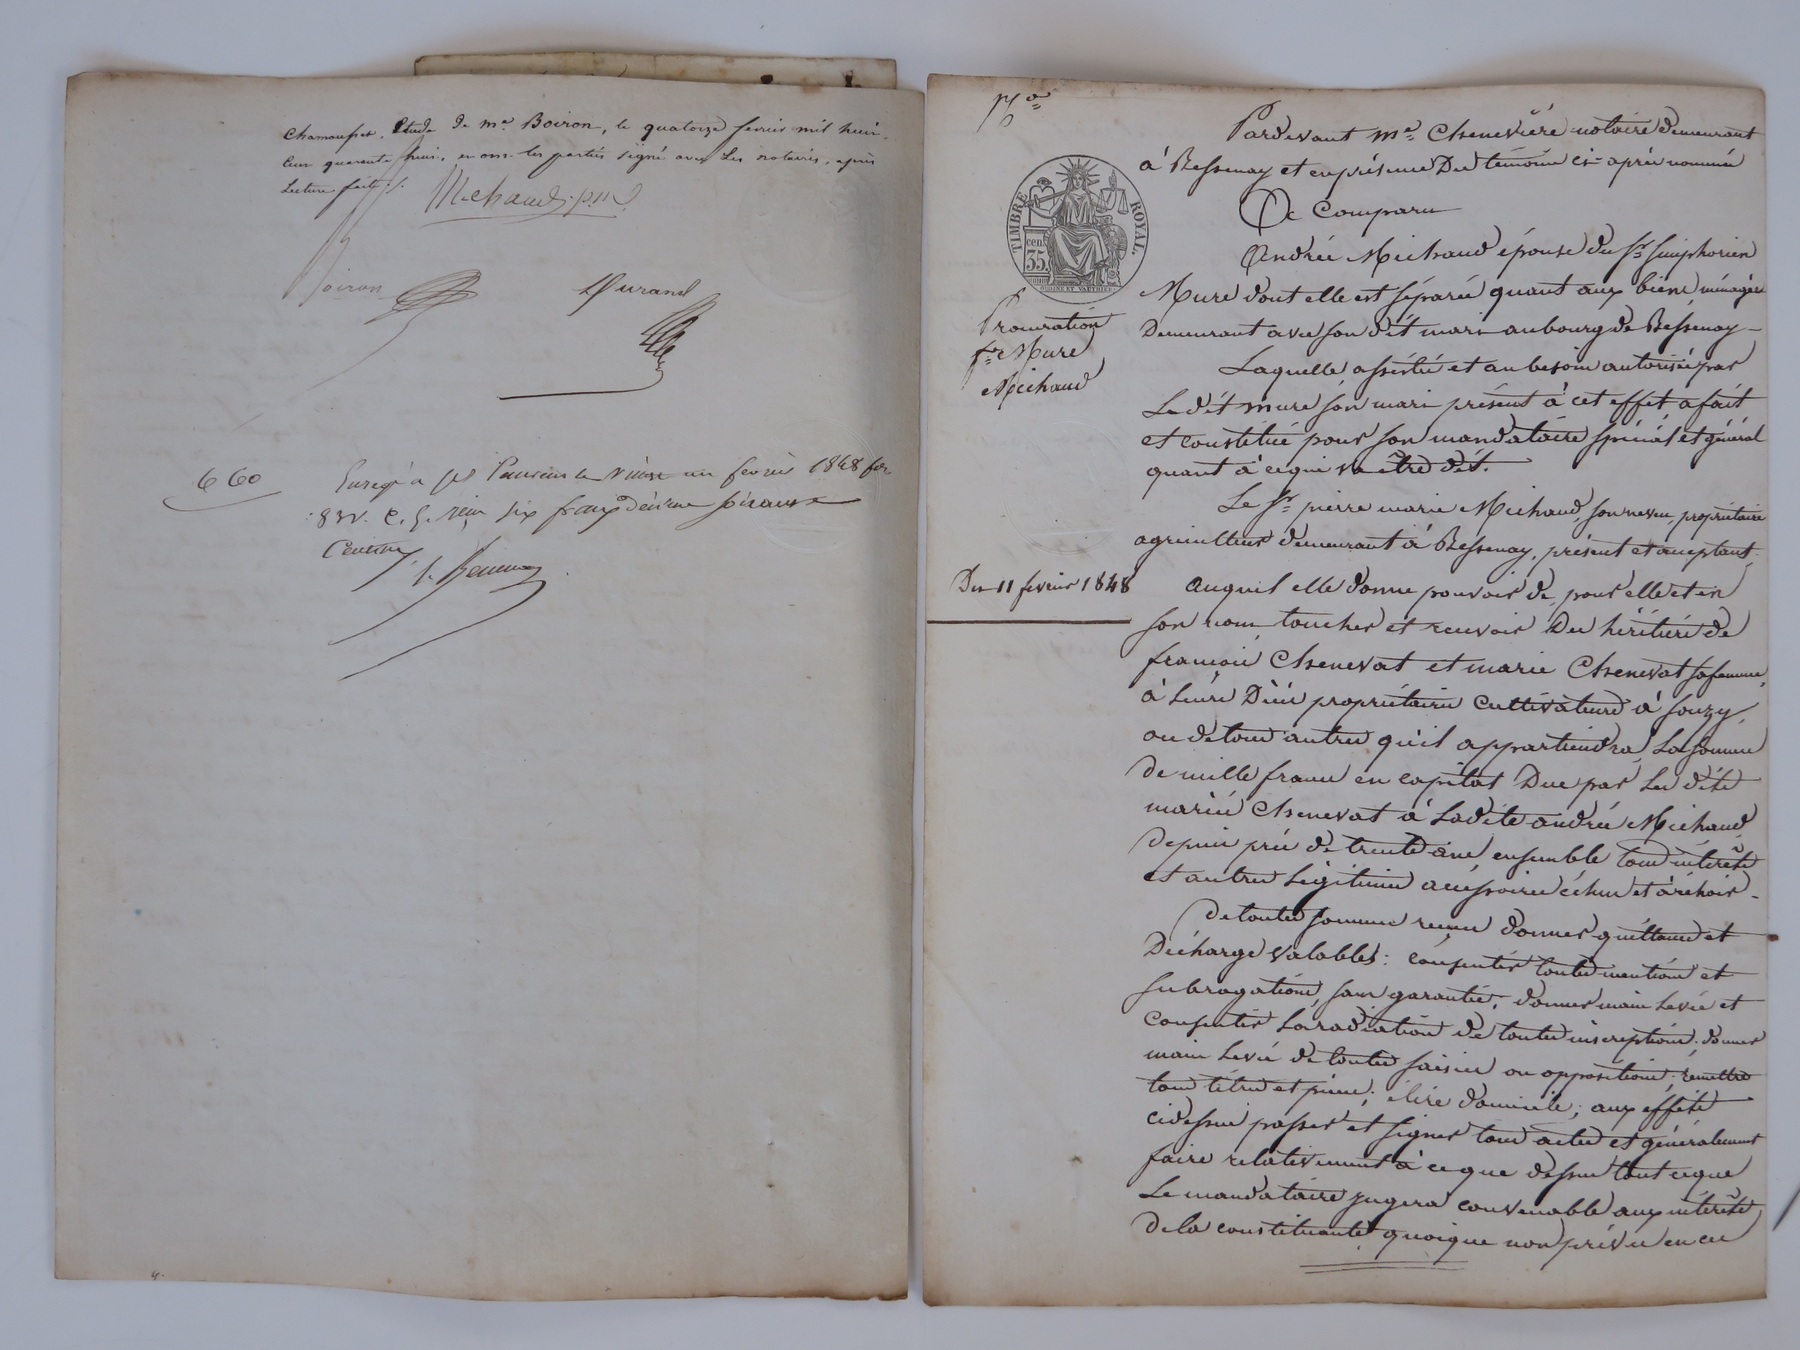 Chamousset, Etude de me Boiron, le quatorze fevrier mil huit-
cent quarante huit, et ont les parties signé avec les notaires, après
Lecture faite./.
Michaud. p.m
Boiron
Durand
6 60
Enregé à le vingt un fevrier 1848 fo
83 v. C. 5. reçu six francs décime soixante
Centimes
Pardevant Me Chenevière notaire demeurant
à Bessenay et en présence Des témoins ci-après nommés
A Comparu
Andrée Michaud épouse du Sr Simphorien
Mure dont elle est séparée quant aux biens, ménagère
Demeurant avec son dit mari au bourg de Bessenay-
Laquelle, assistée et au besoin autorisée par
Le dit mure son mari présent à cet effet a fait
et constitué pour son mandataire spécial et général
quant à ce qui va être dit.
Le Sr pierre marie Michaud, son neveu, propriétaire
agriculteur demeurant à Bessenay, présent et acceptant
auquel elle donne pouvoir de, pour elle et en
son nom toucher et recevoir Des héritiers de
françois Chenevat et marie Chenevat sa femme,
à leurs Décès propriétaires Cultivateurs à Souzy,
ou de tous autres qu'il appartiendra, La somme
De mille francs en capital Due par Les dits
mariés Chenevat à Ladite andrée Michaud
Depuis près de trente ans, ensemble tous intérêts
et autres Légitimes accéssoires échus et à échoir-
De toutes sommes reçues donner quittances et
Décharge valables: consentir toutes mentions et
Subrogations, sans garantie; donner main levée et
consentir La radiation de toutes inscriptions; donner
main levée de toutes saisies ou oppositions; remettre
tous titres et pièces; élire domicile; aux effets
cidessus passer et signer tous actes et généralement
faire relativement à ce que dessus tout ce que
Le mandataire jugera convenable aux intérêts
De la constituante quoique non prévu en ces
TIMBRE ROYAL.
35 cen.
Procuration
fe Mure
Michaud
Du 11 fevrier 1848